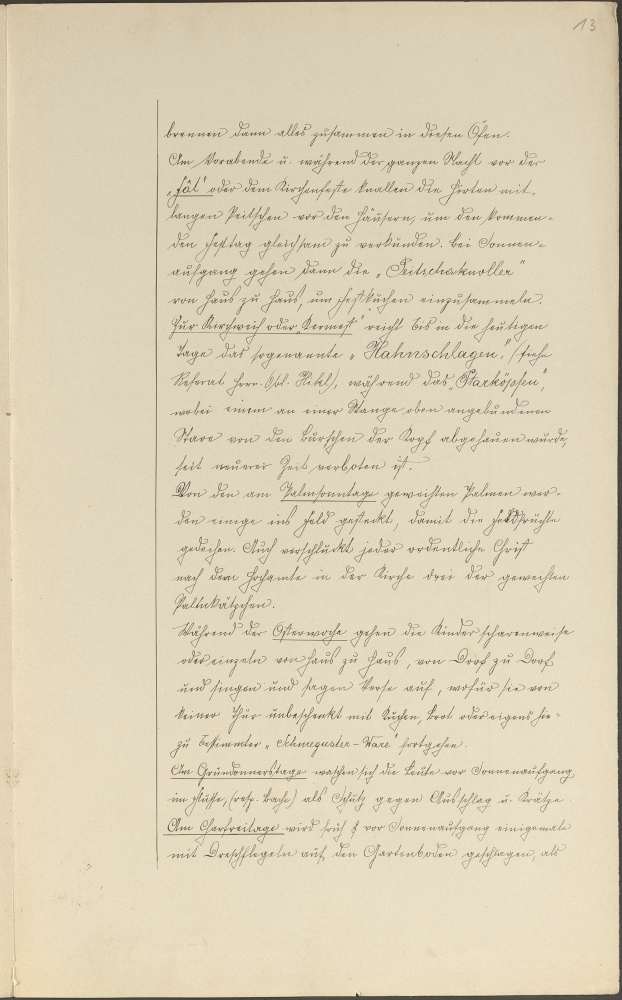 13
brennen dann alles zusammen in diesen Ofen.
Am Vorabende u. während der ganzen Nacht vor der
„Fât" oder dem Kirchenfeste knallen die Hirten mit
langen Peitschen vor den Häusern, um den kommen-
den Festtag gleichsam zu verkünden. Bei Sonnen-
aufgang gehen dann die „Peitschaknoller"
von Haus zu Haus, um Festkuchen einzusammeln.
Zur Kirchweih oder „Kermest" reicht bis in die heutigen
Tage das sogenannte „Hahnschlagen," (siehe
Referat Herr. Obl. Hikl), während das „Starköpfen",
wobei einem an einer Stange oben angebundenen
Stare von den Burschen der Kopf abgehauen wurde,
seit neuerer Zeit verboten ist.
Von den am Palmsonntage geweihten Palmen wer-
den einige ins Feld gesteckt, damit die Feldfrüchte
gedeihen. Auch verschluckt jeder ordentliche Christ
nach dem Hochamte in der Kirche drei der geweihten
Palmkätzchen.
Während der Osterwoche gehen die Kinder scharenweise
oder einzeln von Haus zu Haus, von Dorf zu Dorf
und singen und sagen Verse auf, wofür sie von
keiner Thür unbeschenkt mit Kuchen, Brot oder eigens hie-
zu bestimmter „Schmeguster-Ware" fortgehen.
Am Gründonnerstage waschen sich die Leute vor Sonnenaufgang
im Flusse, (resp. Bache) als Schutz gegen Ausschlag u. Krätze
Am Charfreitage wird früh vor Sonnenaufgang einigemale
mit Dreschflegeln auf den Gartenboden geschlagen, als